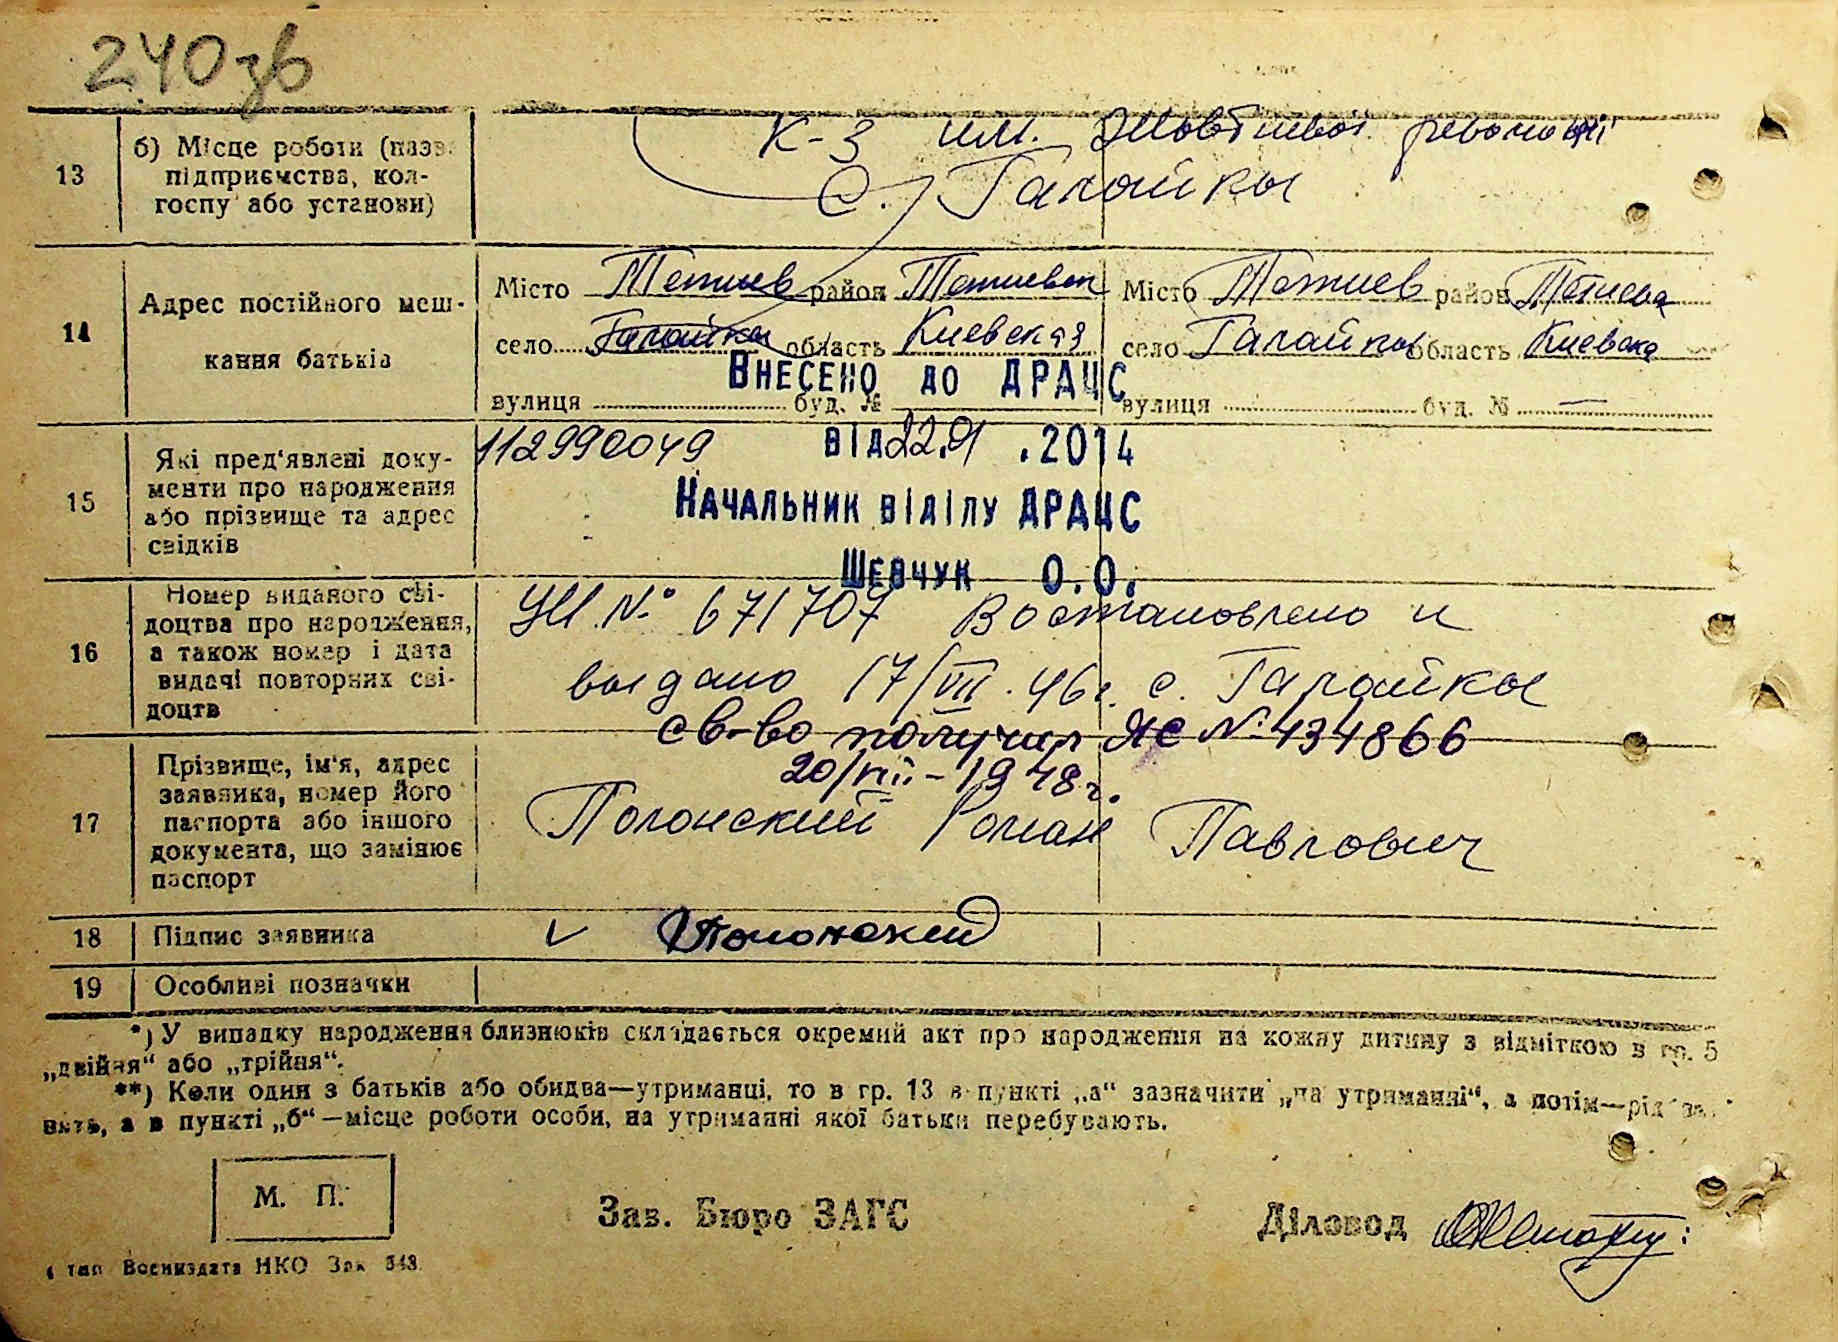 240зв
13
б) Місце роботи (назва
підприємства, кол-
госпу або установи)
к-з им. Жовтневої революції
с. Галайки
14
Адрес постійного меш-
кання батьків
Місто Тетиев район Тетиевск Місто Тетиев район Тетиевск
село Галайки область Киевская село Галайки область Киевска
вулиця буд. № вулиця буд. № —
Внесено до ДРАЦС
15
Які пред'явлені доку-
менти про народження
або прізвище та адрес
свідків
112990049
від 22.01.2014
Начальник відділу ДРАЦС
Шевчук О.О.
16
Номер виданого сві-
доцтва про народження,
а також номер і дата
видачі повторних сві-
доцтв
№ 671707 Востановлено и
выдано 17/VII.46г. с. Галайки
св-во получил ЯС № 434866
20/VII-1948г.
17
Прізвище, ім'я, адрес
заявника, номер його
паспорта або іншого
документа, що замінює
паспорт
Полонский Роман Павлович
18
Підпис заявника
Полонский
19
Особливі позначки
*) У випадку народження близнюків складається окремий акт про народження на кожну дитину з відміткою в гр. 5
„двійня“ або „трійня“.
**) Коли один з батьків або обидва—утриманці, то в гр. 13 в пункті „а“ зазначити „на утриманні“, а потім—рід за-
нять, а в пункті „б“—місце роботи особи, на утриманні якої батьки перебувають.
М. П.
Зав. Бюро ЗАГС
Діловод
4 тип Воениздата НКО Зак 548